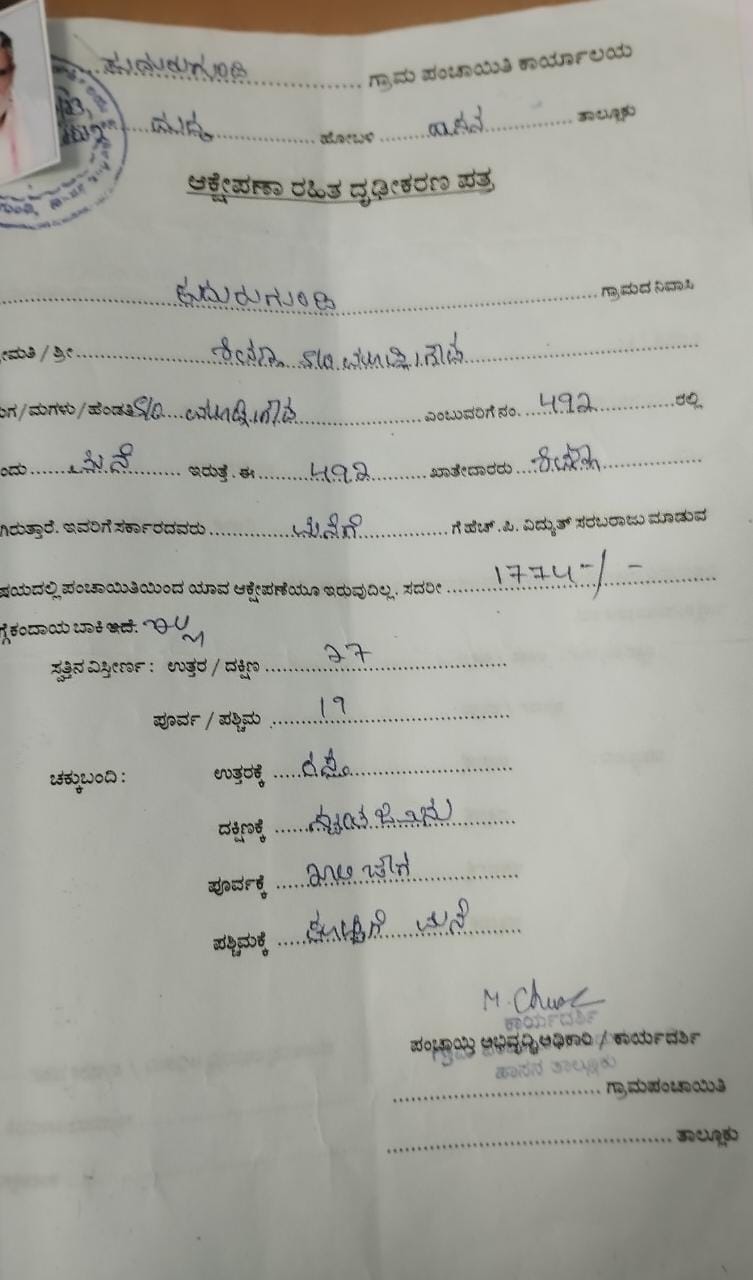 ಕುದುರುಗುಂಡಿ ಗ್ರಾಮ ಪಂಚಾಯಿತಿ ಕಾರ್ಯಾಲಯ
ದುದ್ದ ಹೋಬಳಿ ಹಾಸನ ತಾಲ್ಲೂಕು
ಆಕ್ಷೇಪಣಾ ರಹಿತ ದೃಢೀಕರಣ ಪತ್ರ
ಕುದುರುಗುಂಡಿ ಗ್ರಾಮದ ನಿವಾಸಿ
ಮತಿ / ಶ್ರೀ
ಗ / ಮಗಳು / ಹೆಂಡತಿ ಎಂಬುವರಿಗೆ ನಂ. 492 ರಲ್ಲಿ
ಂದು ಮನೆ ಇರುತ್ತೆ. ಈ 492 ಖಾತೇದಾರರು
ಗಿರುತ್ತಾರೆ. ಇವರಿಗೆ ಸರ್ಕಾರದವರು ಮನೆಗೆ ಗೆ ಹೆಚ್.ಪಿ. ವಿದ್ಯುತ್ ಸರಬರಾಜು ಮಾಡುವ
ಷಯದಲ್ಲಿ ಪಂಚಾಯಿತಿಯಿಂದ ಯಾವ ಆಕ್ಷೇಪಣೆಯೂ ಇರುವುದಿಲ್ಲ. ಸದರೀ 1774-/-
ಗ್ಗೆ ಕಂದಾಯ ಬಾಕಿ ಇದೆ. ಇಲ್ಲ
ಸ್ವತ್ತಿನ ವಿಸ್ತೀರ್ಣ : ಉತ್ತರ / ದಕ್ಷಿಣ 27
ಪೂರ್ವ / ಪಶ್ಚಿಮ 19
ಚಕ್ಕುಬಂದಿ : ಉತ್ತರಕ್ಕೆ ರಸ್ತೆ
ದಕ್ಷಿಣಕ್ಕೆ ಸ್ವಂತ ಜಮೀನು
ಪೂರ್ವಕ್ಕೆ ಖಾಲಿ ಜಾಗ
ಪಶ್ಚಿಮಕ್ಕೆ ಮನೆ
ಕಾರ್ಯದರ್ಶಿ
ಪಂಚಾಯ್ತಿ ಅಭಿವೃದ್ಧಿ ಅಧಿಕಾರಿ / ಕಾರ್ಯದರ್ಶಿ
ಹಾಸನ ತಾಲ್ಲೂಕು
ಗ್ರಾಮಪಂಚಾಯಿತಿ
ತಾಲ್ಲೂಕು